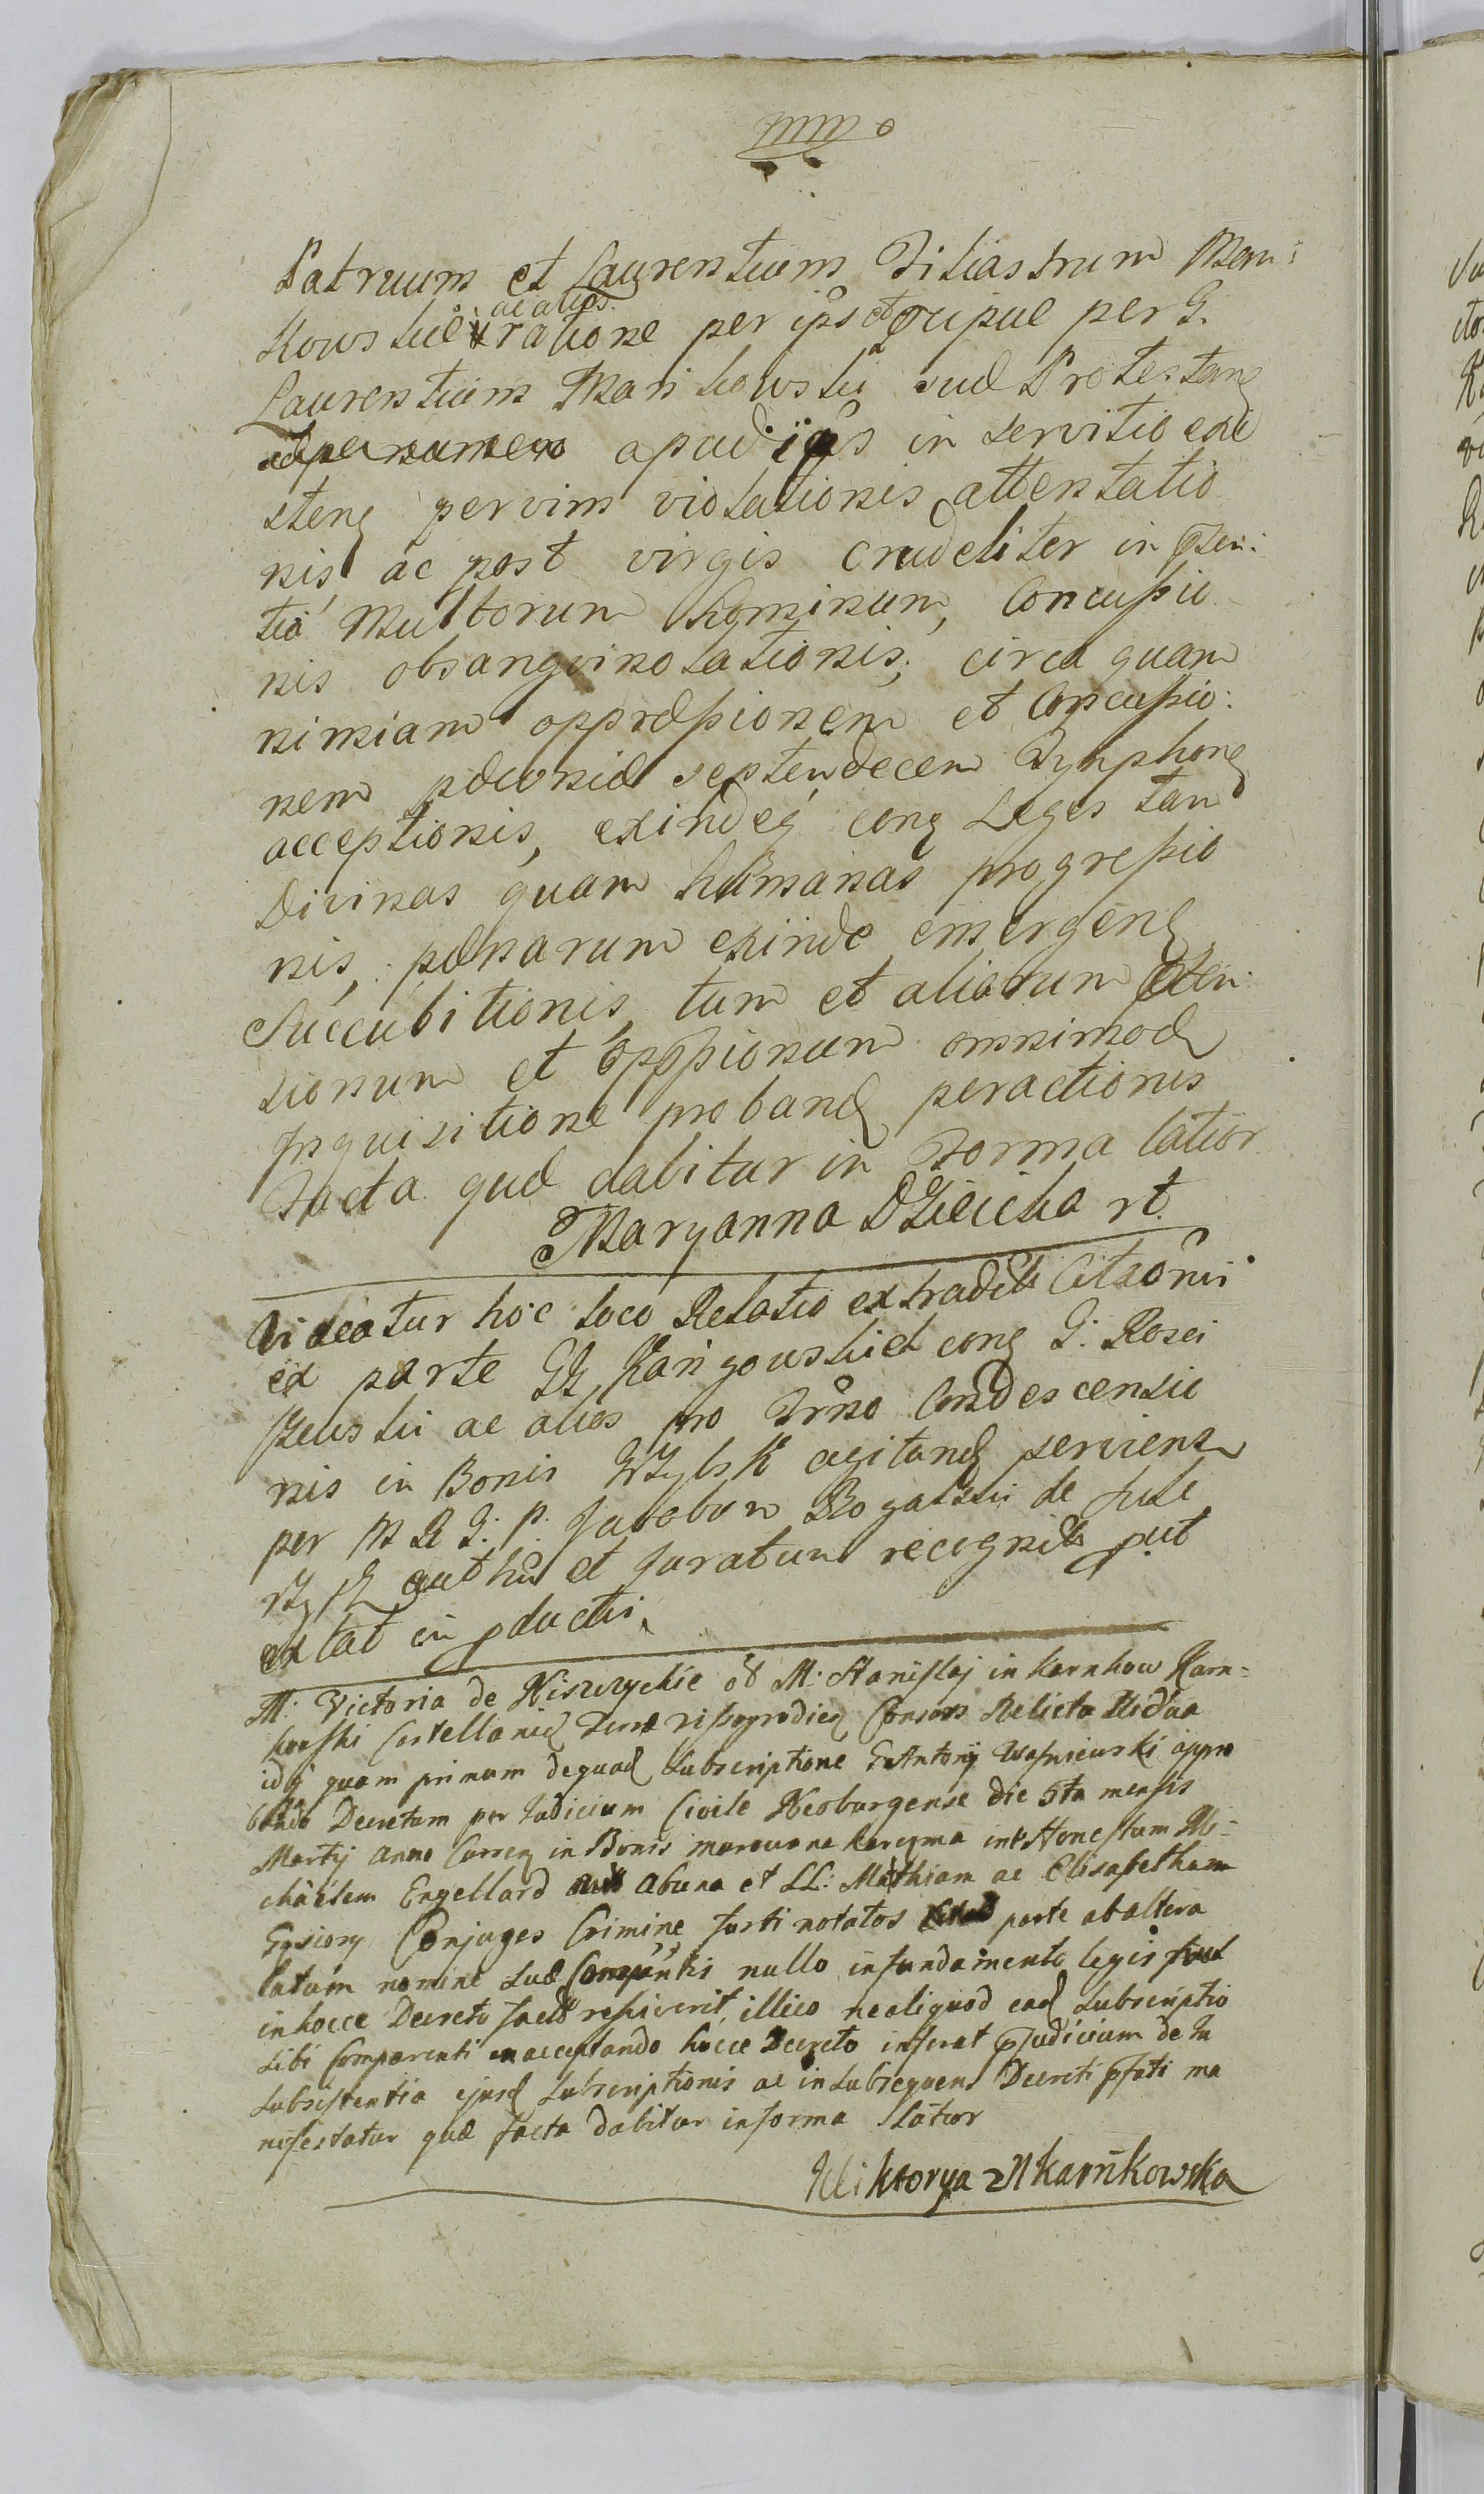 Patruum et Laurentium Filiastrum Man:
kowskie ac alios. ratione per ips et pcipue per G.
Laurentium Mankowski sud Protestan
apud ips in servitio exi
sten pervim violationis attentatio
nis ac post virgis crudeliter in psen:
tia Multorum hominum, Concussio
nis obsangvinolationis, circa quam
nimiam oppræssionem et Concussio:
nem septendecem Tymphon
acceptionis, exindeq con Leges tam
Divinas quam humanas progressio
nis, pænarum exinde emergen
Succubitionis, tum et aliarum
sionum et omnimod
Inquisitione proband peractionis
Facta quæ dabitur in Forma latior
Maryanna Dzieicka rt.
Videatur hoc loco Relatio extradit Citaonis
ex parte GG. con G: Rosci
szewski ac alios pro Frno Condescensio
nis in Bonis agitand servien
per M R G: P: Jacobum Rogalski de
auth et Juratum recognit put
extat in pductis.
M: Victoria de Kiszwychie M: Stanislaj in Karnkow Karn=
kowski Castellanid Consors Relicta Vidua
idq quam primum dequad Subscriptione G Antonij Wasniewski appro
bando Decretum per Judicium Civile Neoburgense die 5ta mensis
Martij Anno Curren in Bonis int Honestum Mi=
chaelem Engellard abuna et LL: Mathiam ac Elisabetham
Gysiory Conjuges Crimine furti notatos parte abaltera
latum nomine suæ Comparentis nullo infundamento legis
inhocce Decreto facto resciverit, illico nealiquod ead Subscriptio
sibi Comparenti inacceptando hocce Decreto inferat pjudicium de In
subsistentia ejusd Subscriptionis ac insubsequen Decreti pfati ma
nifestatur quæ facta dabitur informa latior
Wiktorya Karnkowska